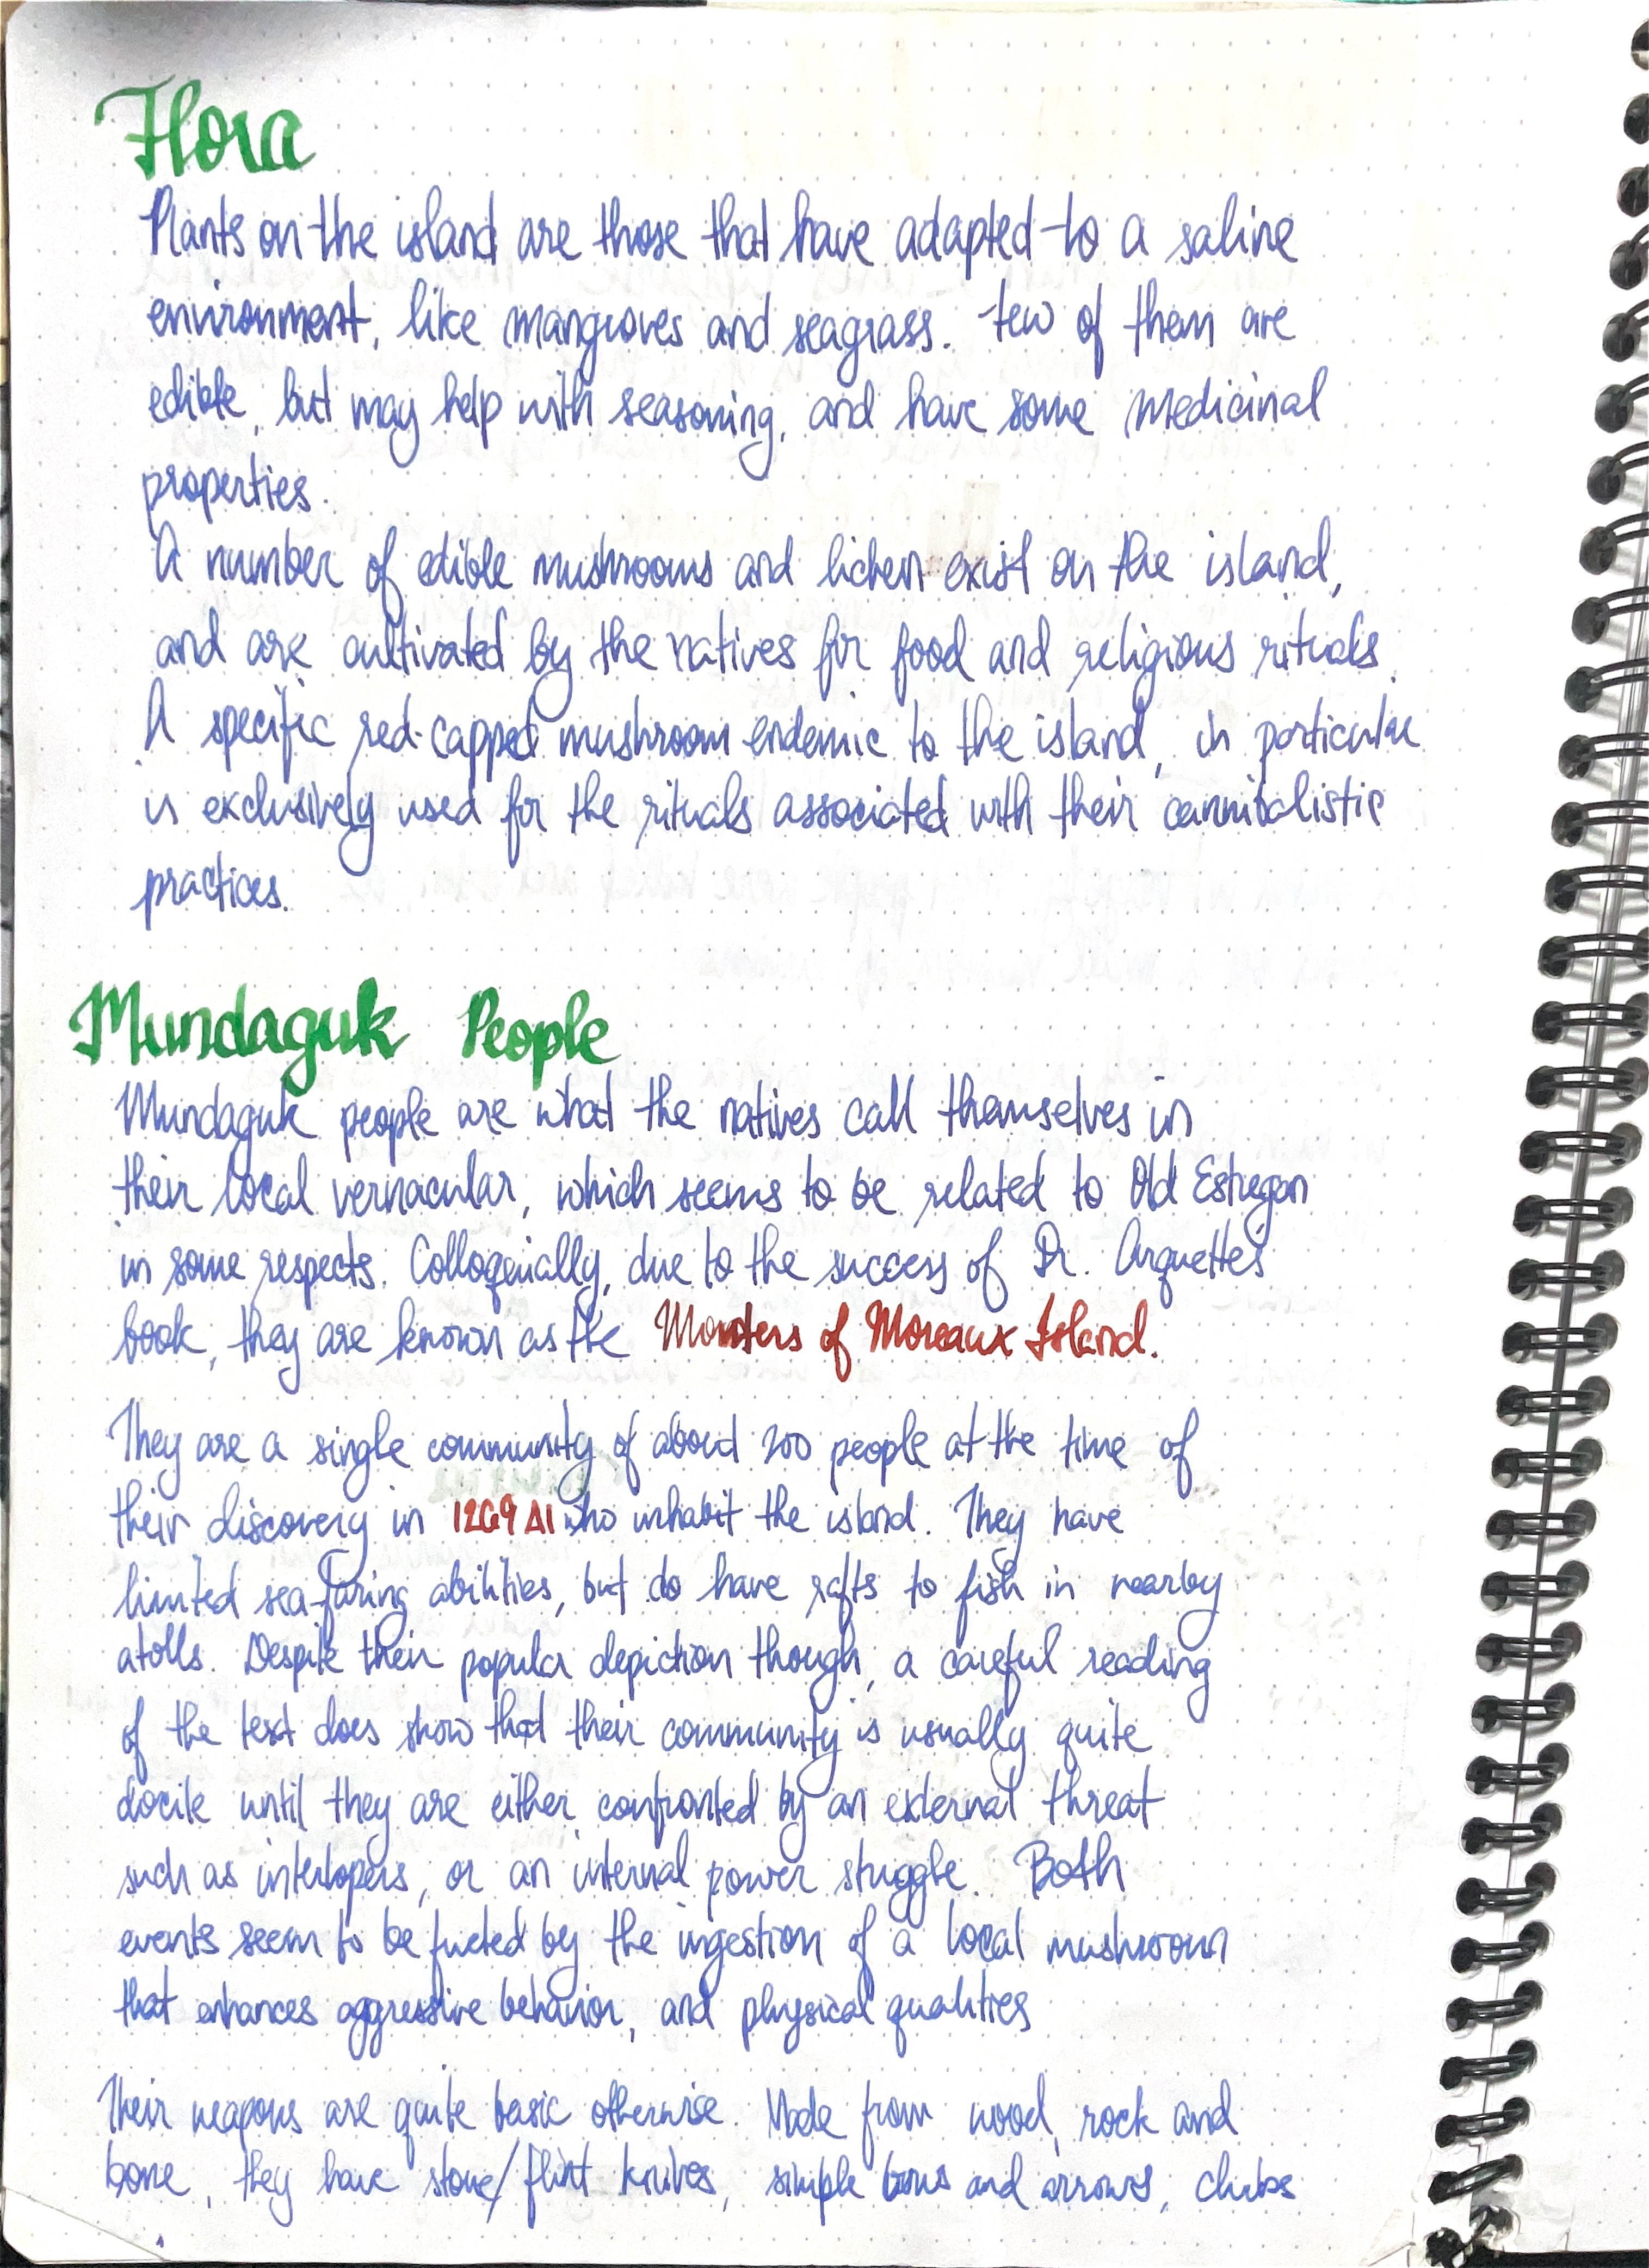 Flora
Plants on the island are those that have adapted to a saline
environment, like mangroves and seagrass. Few of them are
edible, but may help with seasoning, and have some medicinal
properties.
A number of edible mushrooms and lichen exist on the island,
and are cultivated by the natives for food and religious rituals.
A specific red-capped mushroom endemic to the island, in particular
is exclusively used for the rituals associated with their cannibalistic
practices.
Mundaguk People
Mundaguk people are what the natives call themselves in
their local vernacular, which seems to be related to Old Estregan
in some respects. Colloquially, due to the success of Dr. Arquette's
book, they are known as the Monsters of Moreaux Island.
They are a single community of about 200 people at the time of
their discovery in 1269 AI who inhabit the island. They have
limited sea-faring abilities, but do have rafts to fish in nearby
atolls. Despite their popular depiction though, a careful reading
of the text does show that their community is usually quite
docile until they are either confronted by an external threat
such as interlopers, or an internal power stuggle. Both
events seem to be fueled by the ingestion of a local mushroom
that enhances aggressive behavior, and physical qualities
Their weapons are quite basic otherwise. Made from wood, rock and
bone, they have stone/flint knives, simple bows and arrows, clubs